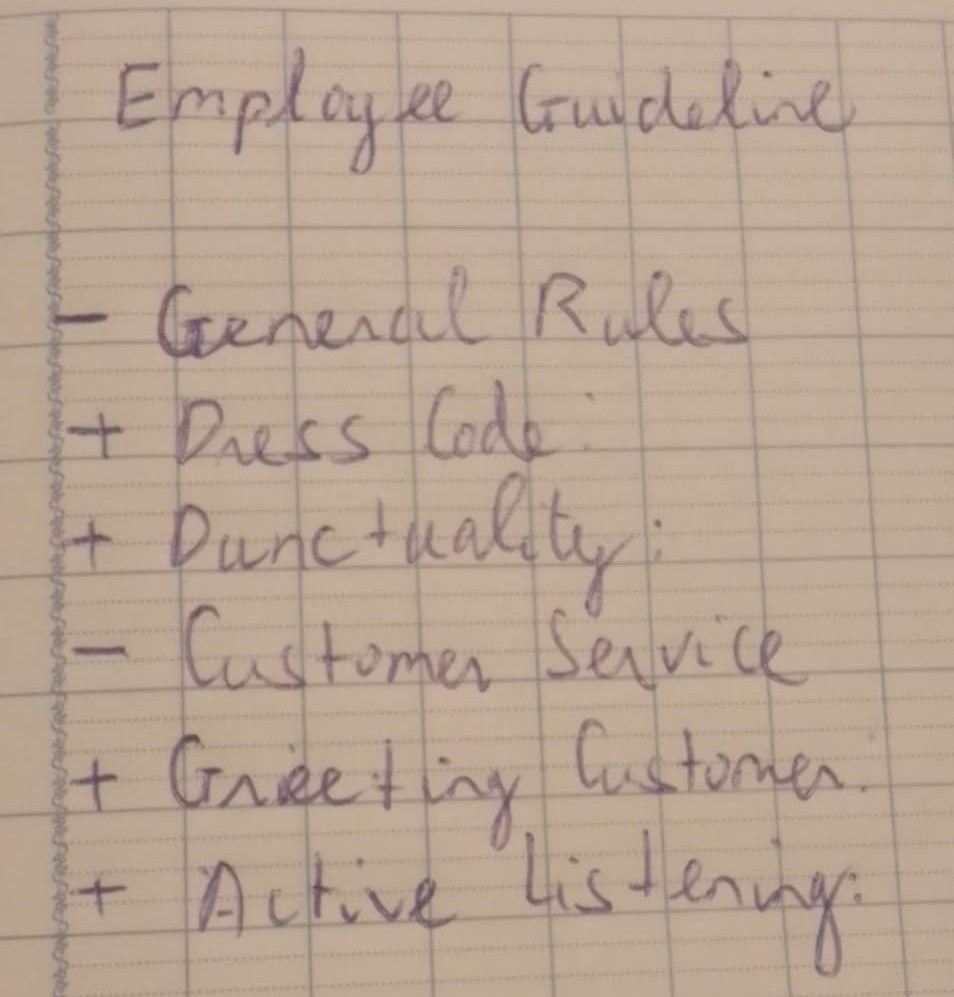 Employee Guideline
- General Rules
+ Dress Code:
+ Punctuality:
- Customer Service
+ Greeting Customer:
+ Active Listening: